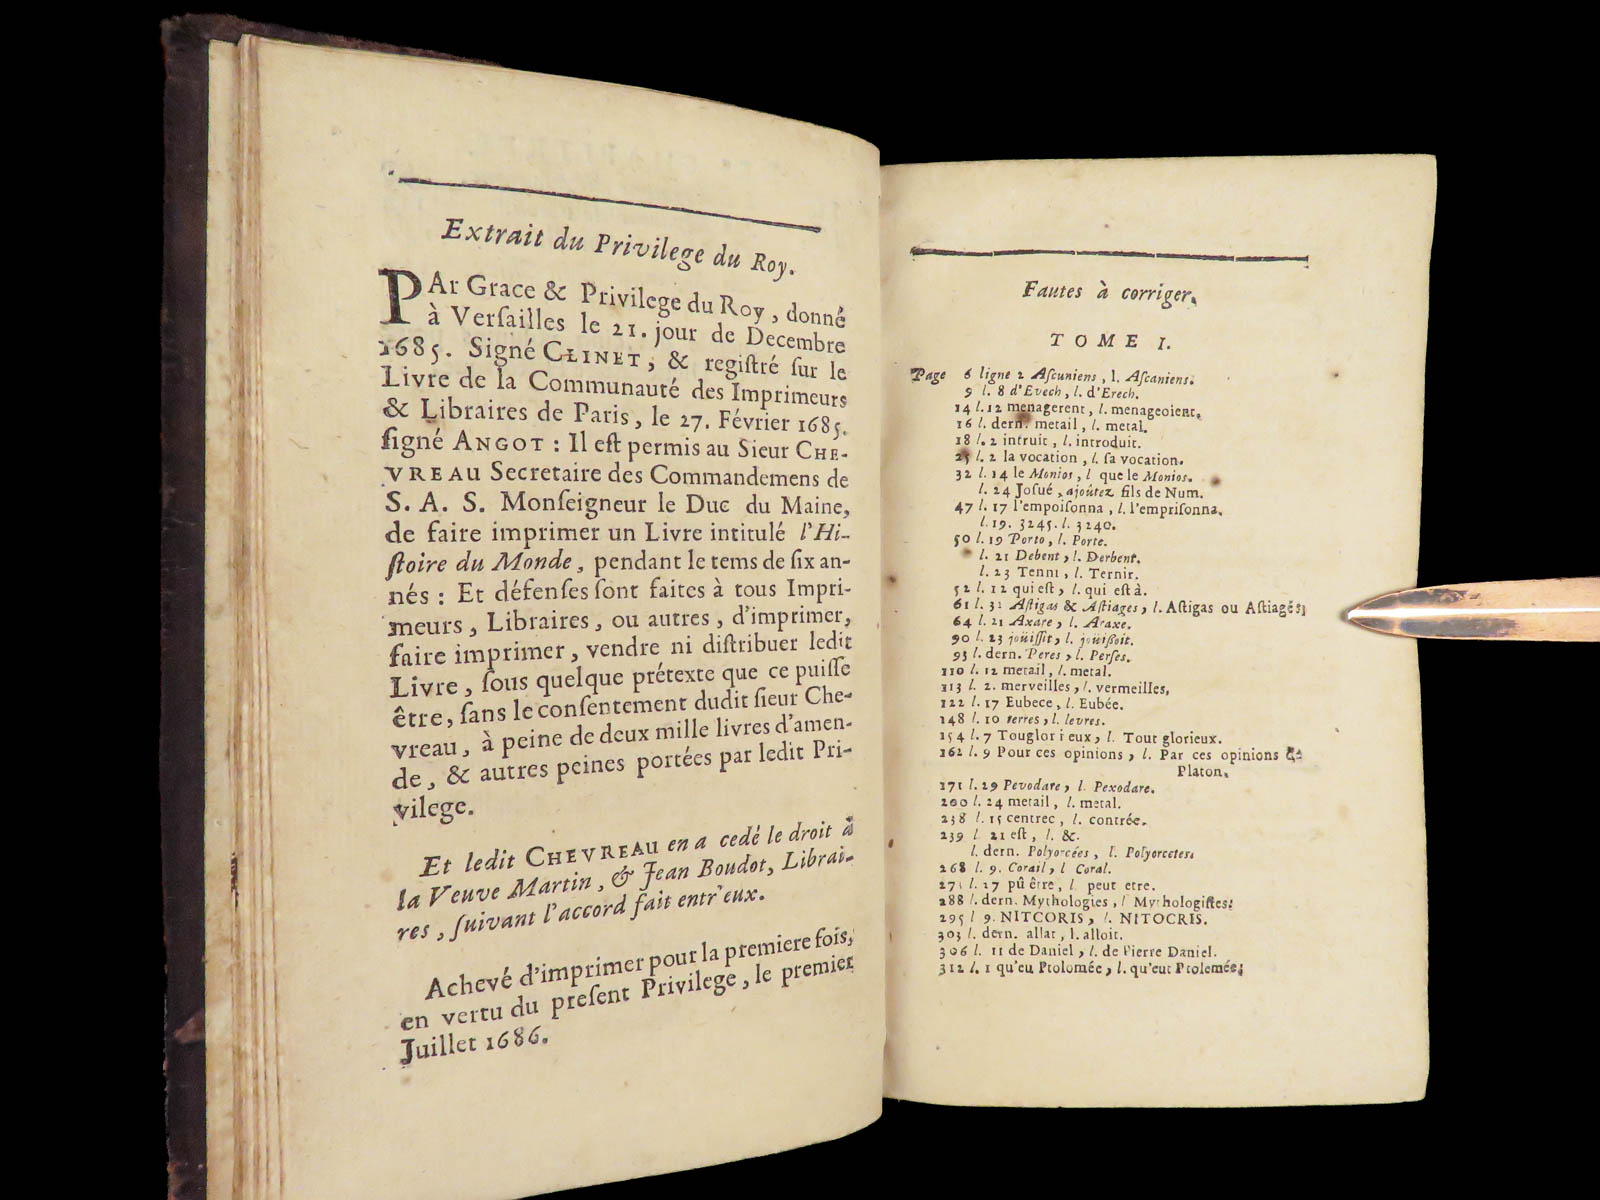 Extrait du Privilege du Roy.
PAr Grace & Privilege du Roy, donné
à Verſailles le 21. jour de Decembre
1685. Signé CLINET, & regiſtré ſur le
Livre de la Communauté des Imprimeurs
& Libraires de Paris, le 27. Février 1685.
ſigné ANGOT : Il eſt permis au Sieur CHE-
VREAU Secretaire des Commandemens de
S. A. S. Monſeigneur le Duc du Maine,
de faire imprimer un Livre intitulé l'Hi-
ſtoire du Monde, pendant le tems de ſix an-
nés : Et défenſes ſont faites à tous Impri-
meurs, Libraires, ou autres, d'imprimer,
faire imprimer, vendre ni diſtribuer ledit
Livre, ſous quelque prétexte que ce puiſſe
être, ſans le conſentement dudit ſieur Che-
vreau, à peine de deux mille livres d'amen-
de, & autres peines portées par ledit Pri-
vilege.
Et ledit CHEVREAU en a cedé le droit à
la Veuve Martin, & Jean Boudot, Librai-
res, ſuivant l'accord fait entr'eux.
Achevé d'imprimer pour la premiere fois,
en vertu du preſent Privilege, le premier
Juillet 1686.
Fautes à corriger.
TOME I.
Page 6 ligne 2 Aſcuniens, l. Aſcaniens.
9 l. 8 d'Evech, l. d'Erech.
14 l. 12 menagerent, l. menageoient.
16 l. dern. metail, l. metal.
18 l. 2 intruit, l. introduit.
25 l. 2 la vocation, l. ſa vocation.
32 l. 14 le Monios, l que le Monios.
l. 24 Joſué, ajoûtez fils de Num.
47 l. 17 l'empoiſonna, l. l'empriſonna.
l. 19. 3245. l. 3240.
50 l. 19 Porto, l. Porte.
l. 21 Debent, l. Derbent.
l. 23 Tenni, l. Ternir.
52 l. 12 qui eſt, l. qui eſt à.
61 l. 31 Aſtigas & Aſtiages, l. Aſtigas ou Aſtiagés;
64 l. 21 Axare, l. Araxe.
90 l. 23 joüiſſit, l. joüiſſoit.
93 l. dern. Peres, l. Perſes.
110 l. 12 metail, l. metal.
113 l. 2. merveilles, l. vermeilles,
122 l. 17 Eubece, l. Eubée.
148 l. 10 terres, l. levres.
154 l. 7 Touglor i eux, l. Tout glorieux.
162 l. 9 Pour ces opinions, l. Par ces opinions &
Platon.
171 l. 29 Pevodare, l. Pexodare.
200 l. 24 metail, l. metal.
238 l. 15 centrec, l. contrée.
239 l 21 eſt, l. &.
l. dern. Polyorcées, l. Polyorcetes.
268 l. 9. Corail, l Coral.
l. 17 pû être, l. peut etre.
288 l. dern. Mythologies, l Mythologiſtes.
295 l 9. NITCORIS, l. NITOCRIS.
303 l. dern. allat, l. alloit.
306 l. 11 de Daniel, l. de Pierre Daniel.
312 l. 1 qu'eu Ptolomée, l. qu'eut Ptolemée;